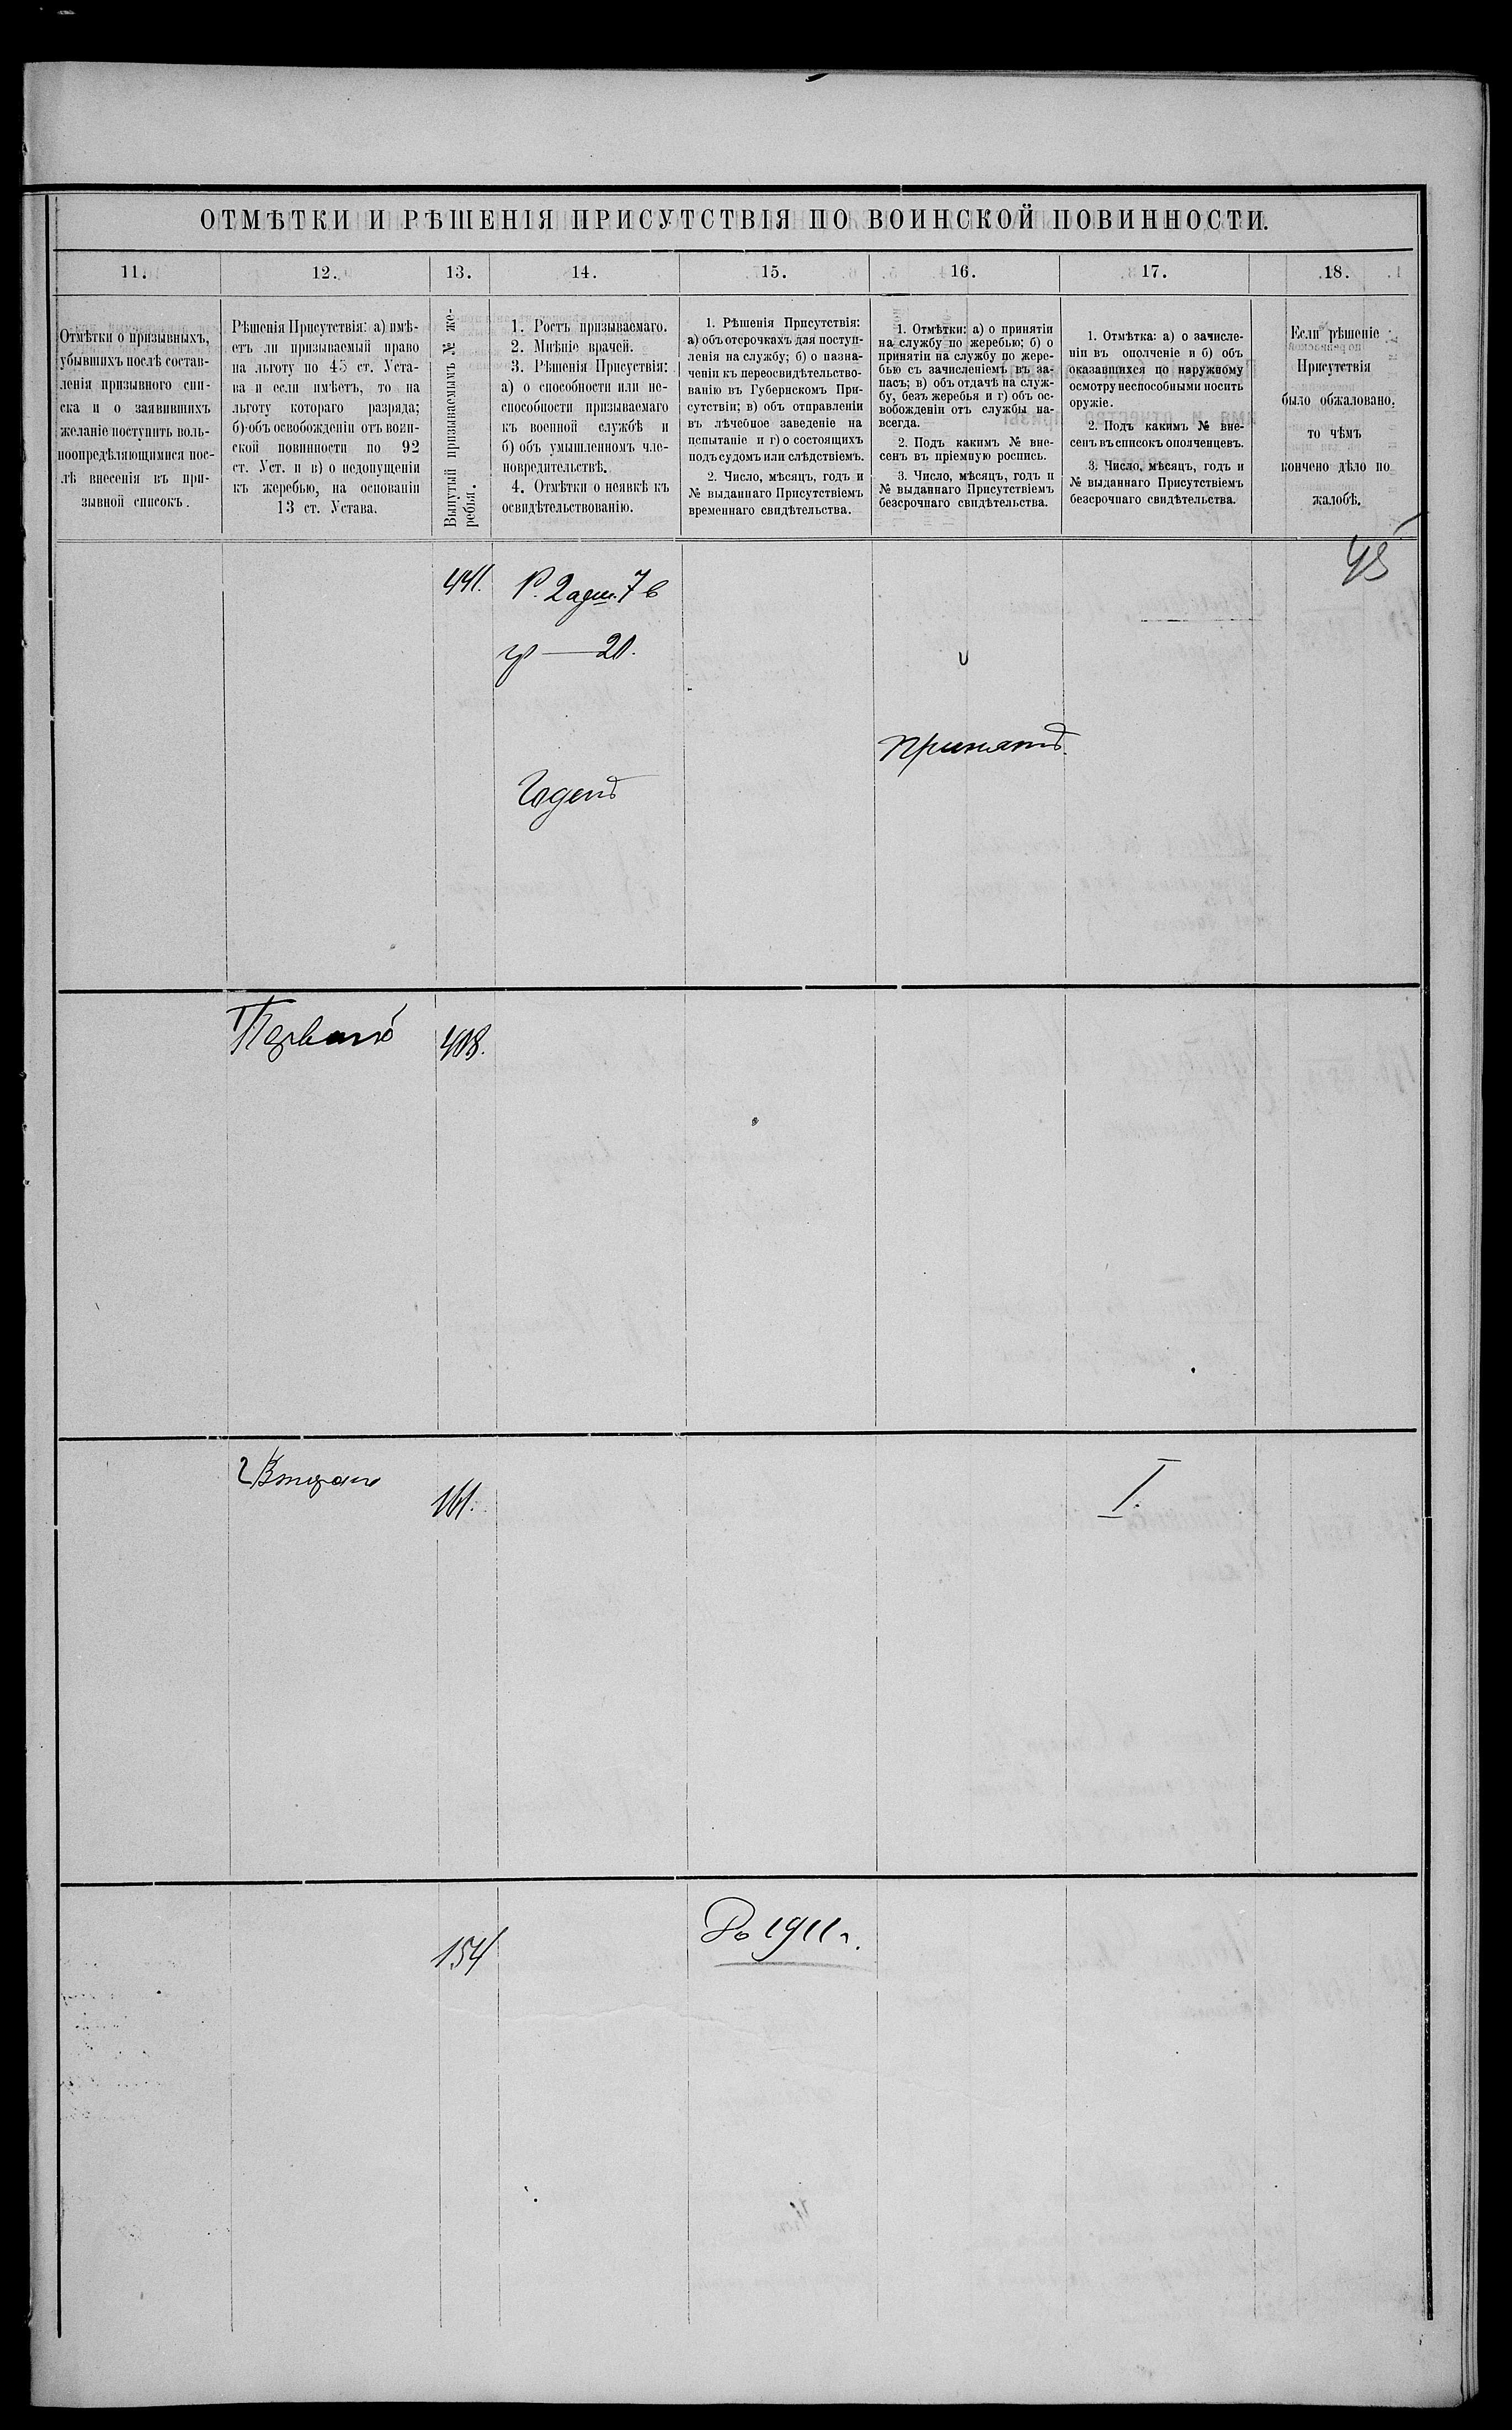 ОТМѢТКИ И РѢШЕНІЯ ПРИСУТСТВІЯ ПО ВОИНСКОЙ ПОВИННОСТИ.
11.
12.
13.
14.
15.
16.
17.
18.
Отмѣтки о призывныхъ,
убывшихъ послѣ состав-
ленія призывного спи-
ска и о заявившихъ
желаніе поступить воль-
ноопредѣляющимися пос-
лѣ внесенія въ при-
зывной списокъ.
Рѣшенія Присутствія: а) имѣ-
етъ ли призываемый право
на льготу по 45 ст. Уста-
ва и если имѣетъ, то на
льготу котораго разряда;
б) объ освобожденіи отъ воин-
ской повинности по 92
ст. Уст. и в) о недопущеніи
къ жеребью, на основаніи
13 ст. Устава.
Вынутый призываемымъ № же-
ребья.
1. Ростъ призываемаго.
2. Мнѣніе врачей.
3. Рѣшенія Присутствія:
а) о способности или не-
способности призываемаго
къ военной службѣ и
б) объ умышленномъ чле-
новредительствѣ.
4. Отмѣтки о неявкѣ къ
освидѣтельствованію.
1. Рѣшенія Присутствія:
а) объ отсрочкахъ для поступ-
ленія на службу; б) о назна-
ченіи къ переосвидѣтельство-
ванію въ Губернскомъ При-
сутствіи; в) объ отправленіи
въ лѣчебное заведеніе на
испытаніе и г) о состоящихъ
подъ судомъ или слѣдствіемъ.
2. Число, мѣсяцъ, годъ и
№ выданнаго Присутствіемъ
временнаго свидѣтельства.
1. Отмѣтки: а) о принятіи
на службу по жеребью; б) о
принятіи на службу по жере-
бью съ зачисленіемъ въ за-
пасъ; в) объ отдачѣ на служ-
бу, безъ жеребья и г) объ ос-
вобожденіи отъ службы на-
всегда.
2. Подъ какимъ № вне-
сенъ въ пріемную роспись.
3. Число, мѣсяцъ, годъ и
№ выданнаго Присутствіемъ
безсрочнаго свидѣтельства.
1. Отмѣтка: а) о зачисле-
ніи въ ополченіе и б) объ
оказавшихся по наружному
осмотру неспособными носить
оружіе.
2. Подъ какимъ № вне-
сенъ въ списокъ ополченцевъ.
3. Число, мѣсяцъ, годъ и
№ выданнаго Присутствіемъ
безсрочнаго свидѣтельства.
Если рѣшеніе
Присутствія
было обжаловано,
то чѣмъ
кончено дѣло по
жалобѣ.
45
441.
Р. 2 арш. 7 в
гр — 20.
Принятъ.
Годенъ
Перваго
408.
Втораго
161.
I.
154
До 1911 г.